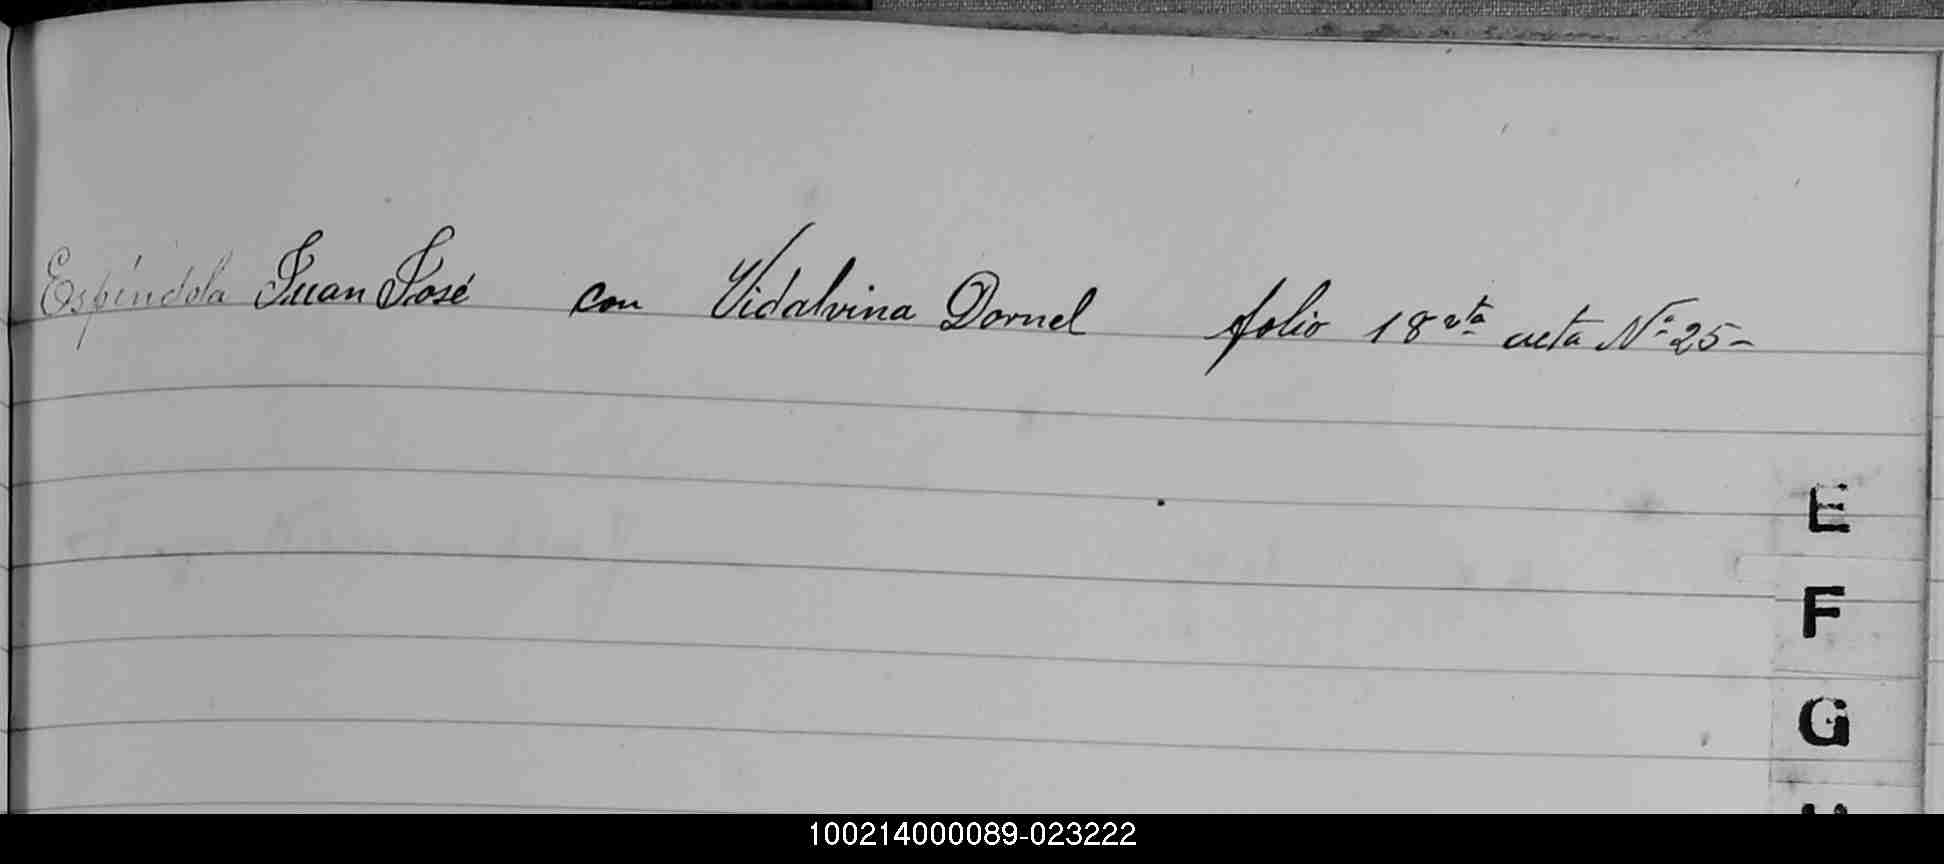 Espíndola Juan José con Vidalvina Dornel folio 18 vta acta Nº 25-
E
F
G
100214000089-023222